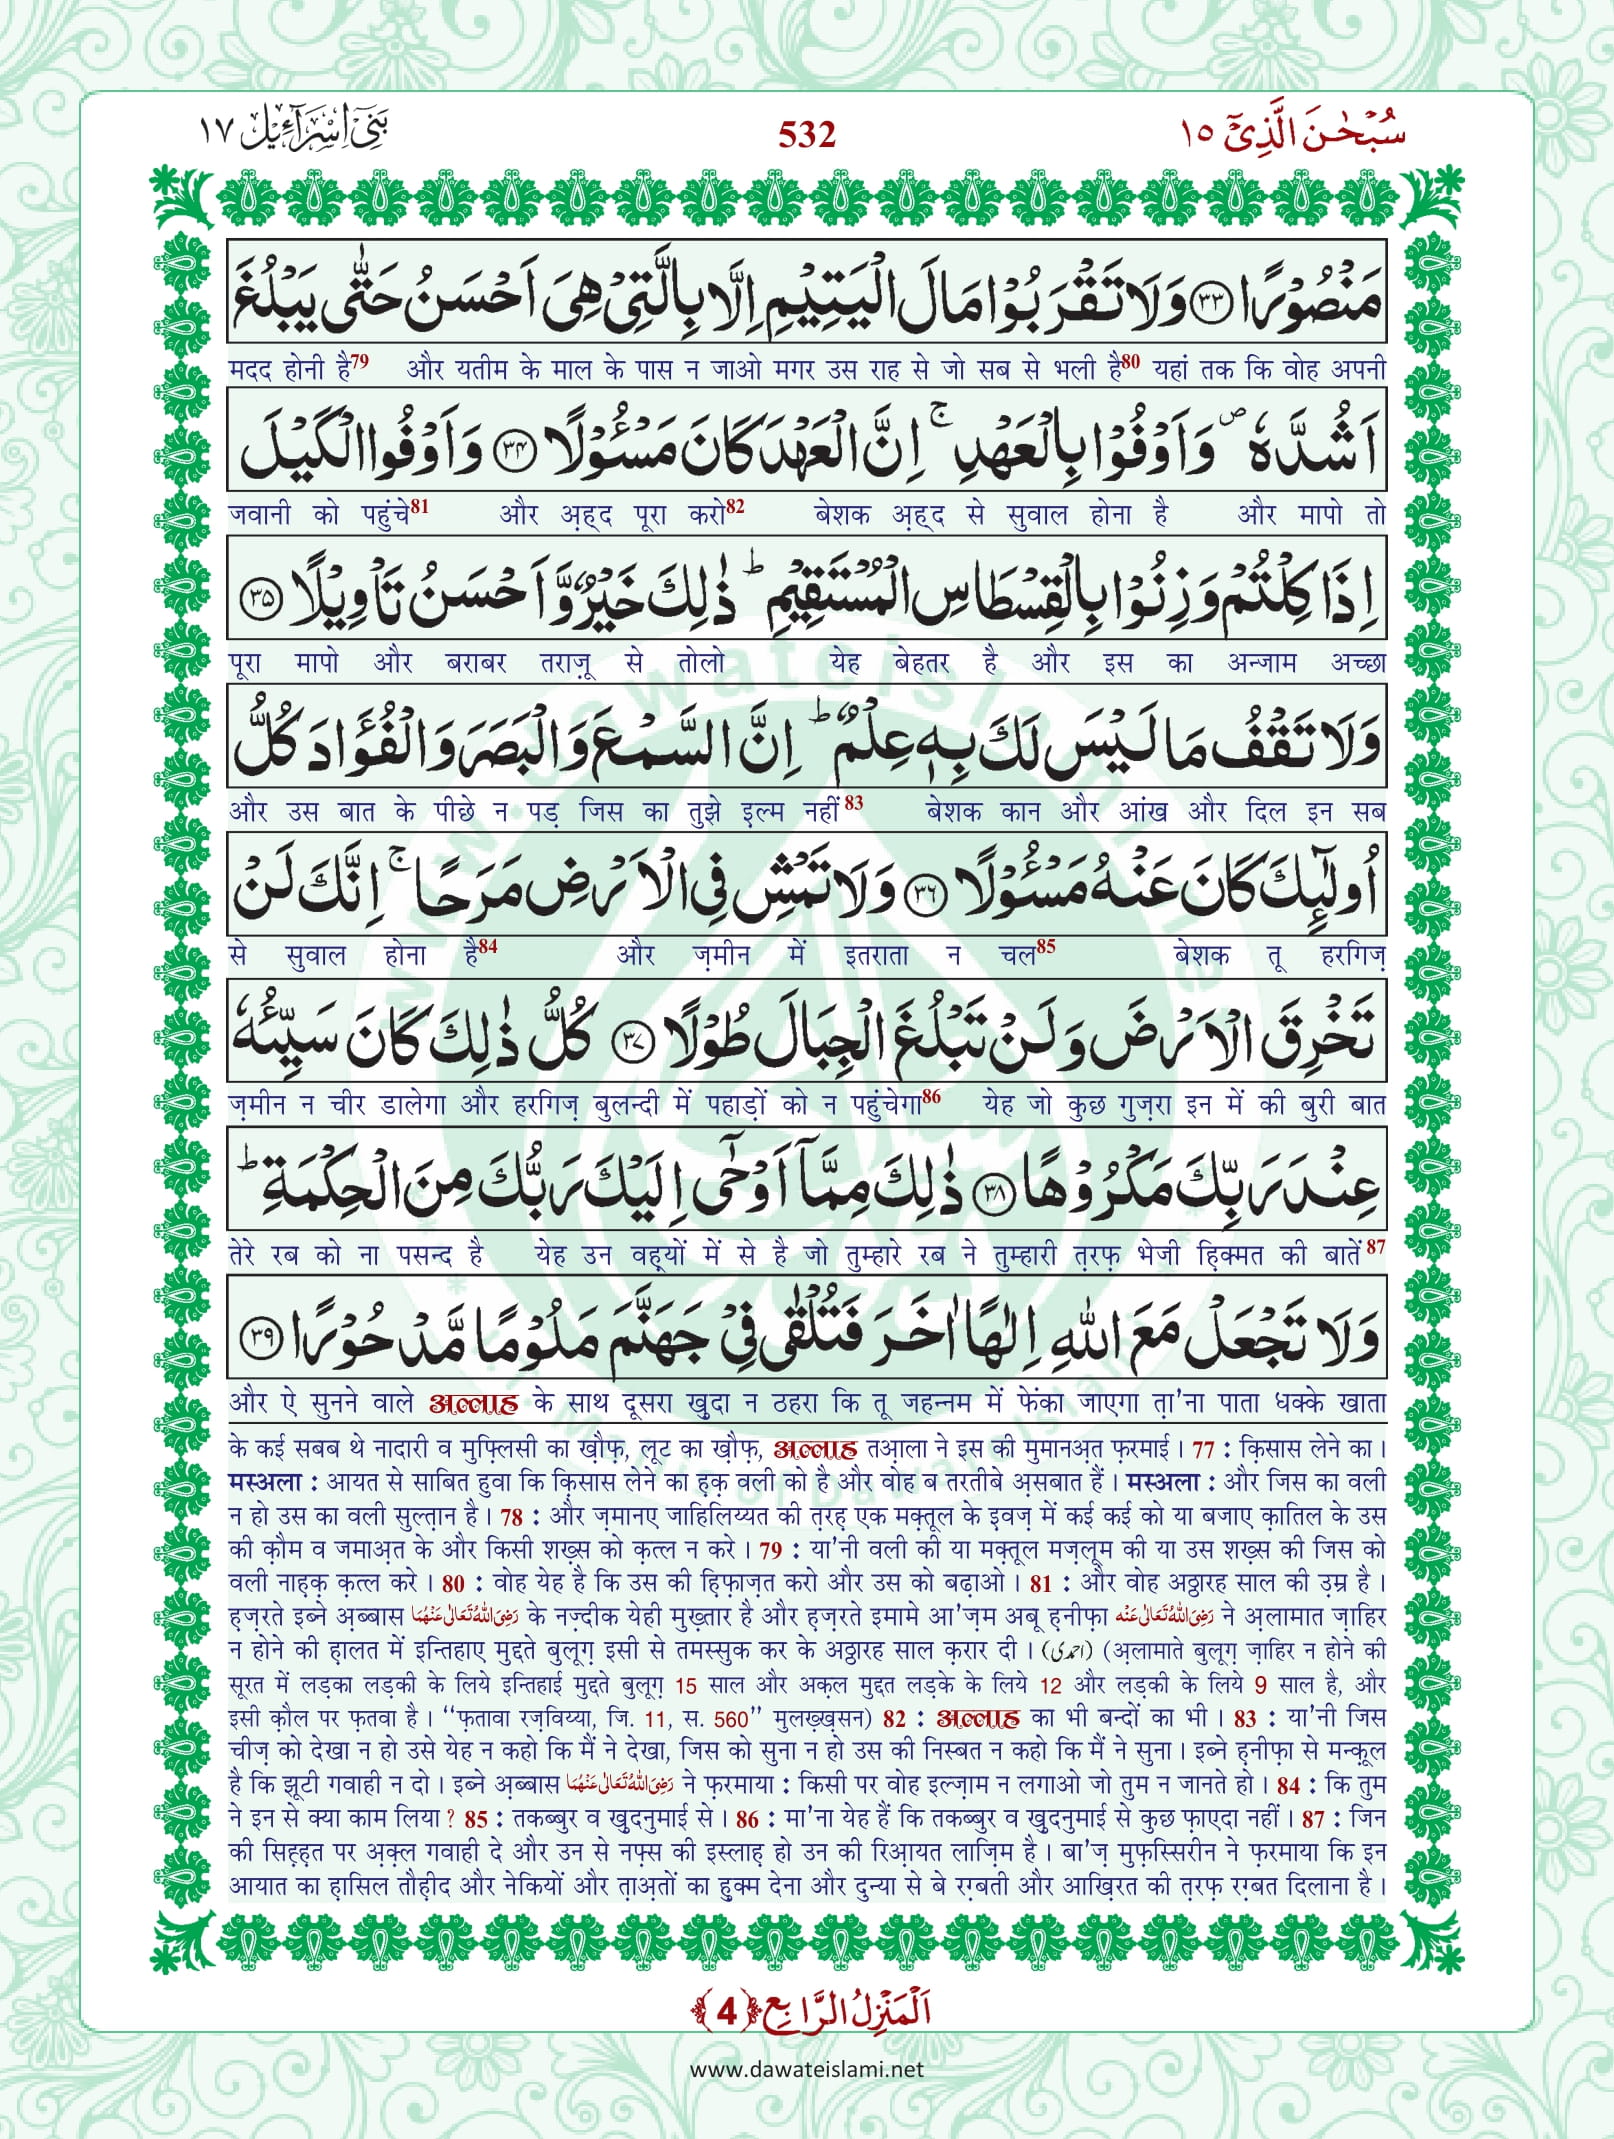 سُبْحٰنَ الَّذِیْۤ ١٥
532
بَنِیْۤ اِسْرَآءِیْل ١٧
مَنْصُوْرًا ﴿۳۳﴾ وَلَا تَقْرَبُوْا مَالَ الْیَتِیْمِ اِلَّا بِالَّتِیْ هِیَ اَحْسَنُ حَتّٰی یَبْلُغَ
मदद होनी है79 और यतीम के माल के पास न जाओ मगर उस राह से जो सब से भली है80 यहां तक कि वोह अपनी
اَشُدَّهٗ ۪ وَاَوْفُوْا بِالْعَهْدِ ۚ اِنَّ الْعَهْدَ كَانَ مَسْـُٔوْلًا ﴿۳۴﴾ وَاَوْفُوا الْكَیْلَ
जवानी को पहुंचे81 और अ़ह्द पूरा करो82 बेशक अ़ह्द से सुवाल होना है और मापो तो
اِذَا كِلْتُمْ وَزِنُوْا بِالْقِسْطَاسِ الْمُسْتَقِیْمِ ؕ ذٰلِكَ خَیْرٌ وَّ اَحْسَنُ تَاْوِیْلًا ﴿۳۵﴾
पूरा मापो और बराबर तराज़ू से तोलो येह बेहतर है और इस का अन्जाम अच्छा
وَلَا تَقْفُ مَا لَیْسَ لَكَ بِهٖ عِلْمٌ ؕ اِنَّ السَّمْعَ وَالْبَصَرَ وَالْفُؤَادَ كُلُّ
और उस बात के पीछे न पड़ जिस का तुझे इल्म नहीं83 बेशक कान और आंख और दिल इन सब
اُولٰٓىِٕكَ كَانَ عَنْهُ مَسْـُٔوْلًا ﴿۳۶﴾ وَلَا تَمْشِ فِی الْاَرْضِ مَرَحًا ۚ اِنَّكَ لَنْ
से सुवाल होना है84 और ज़मीन में इतराता न चल85 बेशक तू हरगिज़
تَخْرِقَ الْاَرْضَ وَلَنْ تَبْلُغَ الْجِبَالَ طُوْلًا ﴿۳۷﴾ كُلُّ ذٰلِكَ كَانَ سَیِّئُهٗ
ज़मीन न चीर डालेगा और हरगिज़ बुलन्दी में पहाड़ों को न पहुंचेगा86 येह जो कुछ गुज़रा इन में की बुरी बात
عِنْدَ رَبِّكَ مَكْرُوْهًا ﴿۳۸﴾ ذٰلِكَ مِمَّاۤ اَوْحٰۤی اِلَیْكَ رَبُّكَ مِنَ الْحِكْمَةِ ؕ
तेरे रब को ना पसन्द है येह उन वह़्यों में से है जो तुम्हारे रब ने तुम्हारी त़रफ़ भेजी हि़क्मत की बातें87
وَلَا تَجْعَلْ مَعَ اللّٰهِ اِلٰهًا اٰخَرَ فَتُلْقٰی فِیْ جَهَنَّمَ مَلُوْمًا مَّدْحُوْرًا ﴿۳۹﴾
और ऐ सुनने वाले अल्लाह के साथ दूसरा ख़ुदा न ठहरा कि तू जहन्नम में फेंका जाएगा त़ा'ना पाता धक्के खाता
के कई सबब थे नादारी व मुफ़्लिसी का ख़ौफ़, लूट का ख़ौफ़, अल्लाह तआला ने इस की मुमानअ़त फ़रमाई। 77 : क़िसास लेने का।
मस्अला : आयत से साबित हुवा कि क़िसास लेने का ह़क़ वली को है और वोह ब तरतीबे अ़सबात हैं। मस्अला : और जिस का वली
न हो उस का वली सुल्त़ान है। 78 : और ज़मानए जाहिलिय्यत की त़रह़ एक मक़्तूल के इ़वज़ में कई कई को या बजाए क़ातिल के उस
की क़ौम व जमाअ़त के और किसी शख़्स को क़त्ल न करे। 79 : या'नी वली की या मक़्तूल मज़्लूम की या उस शख़्स की जिस को
वली नाह़क़ क़त्ल करे। 80 : वोह येह है कि उस की हि़फ़ाज़त करो और उस को बढ़ाओ। 81 : और वोह अठ्ठारह साल की उ़म्र है।
ह़ज़रते इब्ने अ़ब्बास رَضِیَ اللّٰهُ تَعَالٰی عَنْهُمَا के नज़्दीक येही मुख़्तार है और ह़ज़रते इमामे आ'ज़म अबू ह़नीफ़ा رَضِیَ اللّٰهُ تَعَالٰی عَنْه ने अ़लामात ज़ाहिर
न होने की ह़ालत में इन्तिहाए मुद्दते बुलूग़ इसी से तमस्सुक कर के अठ्ठारह साल क़रार दी। (احمدی) (अ़लामाते बुलूग़ ज़ाहिर न होने की
सूरत में लड़का लड़की के लिये इन्तिहाई मुद्दते बुलूग़ 15 साल और अक़ल मुद्दत लड़के के लिये 12 और लड़की के लिये 9 साल है, और
इसी क़ौल पर फ़तवा है। ‘‘फ़तावा रज़विय्या, जि. 11, स. 560’’ मुलख़्ख़सन) 82 : अल्लाह का भी बन्दों का भी। 83 : या'नी जिस
चीज़ को देखा न हो उसे येह न कहो कि मैं ने देखा, जिस को सुना न हो उस की निस्बत न कहो कि मैं ने सुना। इब्ने ह़नीफ़ा से मन्क़ूल
है कि झूटी गवाही न दो। इब्ने अ़ब्बास رَضِیَ اللّٰهُ تَعَالٰی عَنْهُمَا ने फ़रमाया : किसी पर वोह इल्ज़ाम न लगाओ जो तुम न जानते हो। 84 : कि तुम
ने इन से क्या काम लिया ? 85 : तकब्बुर व ख़ुदनुमाई से। 86 : मा'ना येह हैं कि तकब्बुर व ख़ुदनुमाई से कुछ फ़ाएदा नहीं। 87 : जिन
की सिह़्ह़त पर अ़क़्ल गवाही दे और उन से नफ़्स की इस्लाह़ हो उन की रिआ़यत लाज़िम है। बा'ज़ मुफ़स्सिरीन ने फ़रमाया कि इन
आयात का ह़ासिल तौह़ीद और नेकियों और त़ाअ़तों का हु़क्म देना और दुन्या से बे रग़्बती और आख़िरत की त़रफ़ रग़्बत दिलाना है।
اَلْمَنْزِلُ الرَّابِع ﴿4﴾
www.dawateislami.net